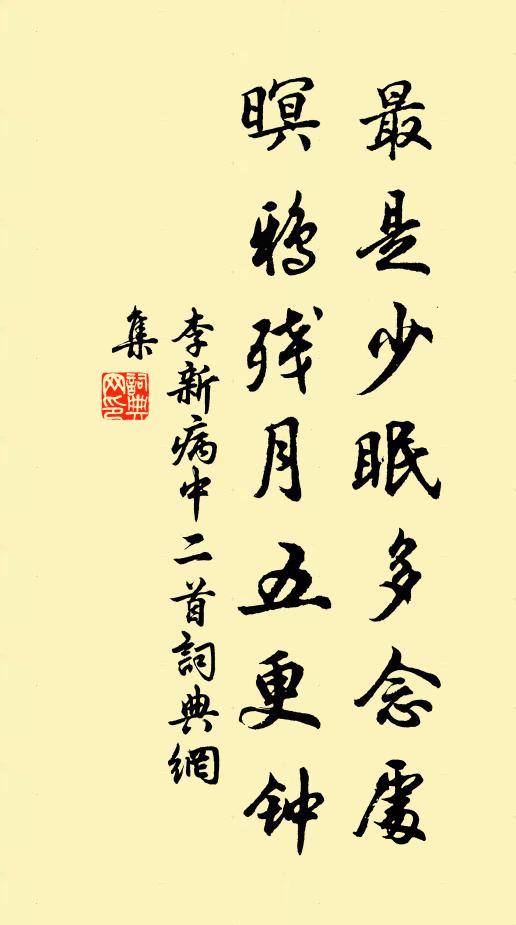 最是少眠多念處
暝鴉残月五更钟
李新病中二首詞典網
集
詞典
网印